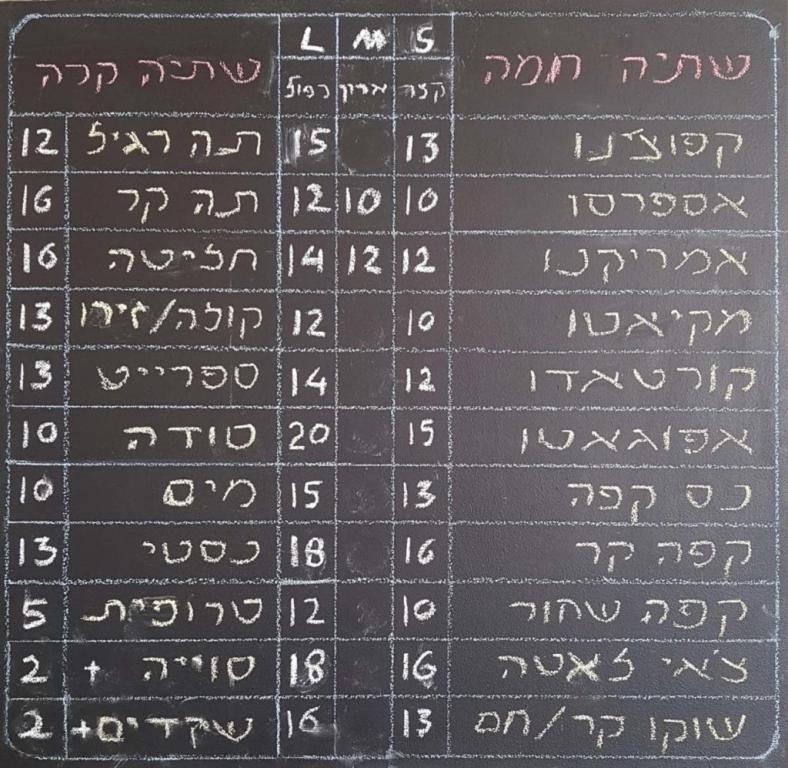 שתיה חמה S M L שתיה קרה
קצר ארוך כפול
קפוצ'ינו 13 15 תה רגיל 12
אספרסו 10 10 12 תה קר 16
אמריקנו 12 12 14 חליטה 16
מקיאטו 10 12 קולה/זירו 13
קורטאדו 12 14 ספרייט 13
אפוגאטו 15 20 סודה 10
נס קפה 13 15 מים 10
קפה קר 16 18 נסטי 13
קפה שחור 10 12 טרופית 5
צ'אי לאטה 16 18 סוייה + 2
שוקו קר/חם 13 16 שקדים+ 2